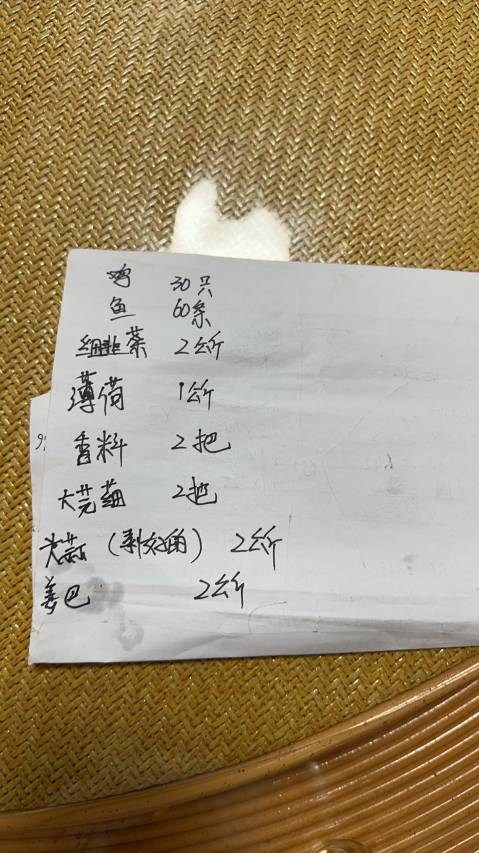 鸡 30只
鱼 60条
细韭菜 2公斤
薄荷 1公斤
香料 2把
大芫荽 2把
大蒜（剥好的） 2公斤
姜巴 2公斤